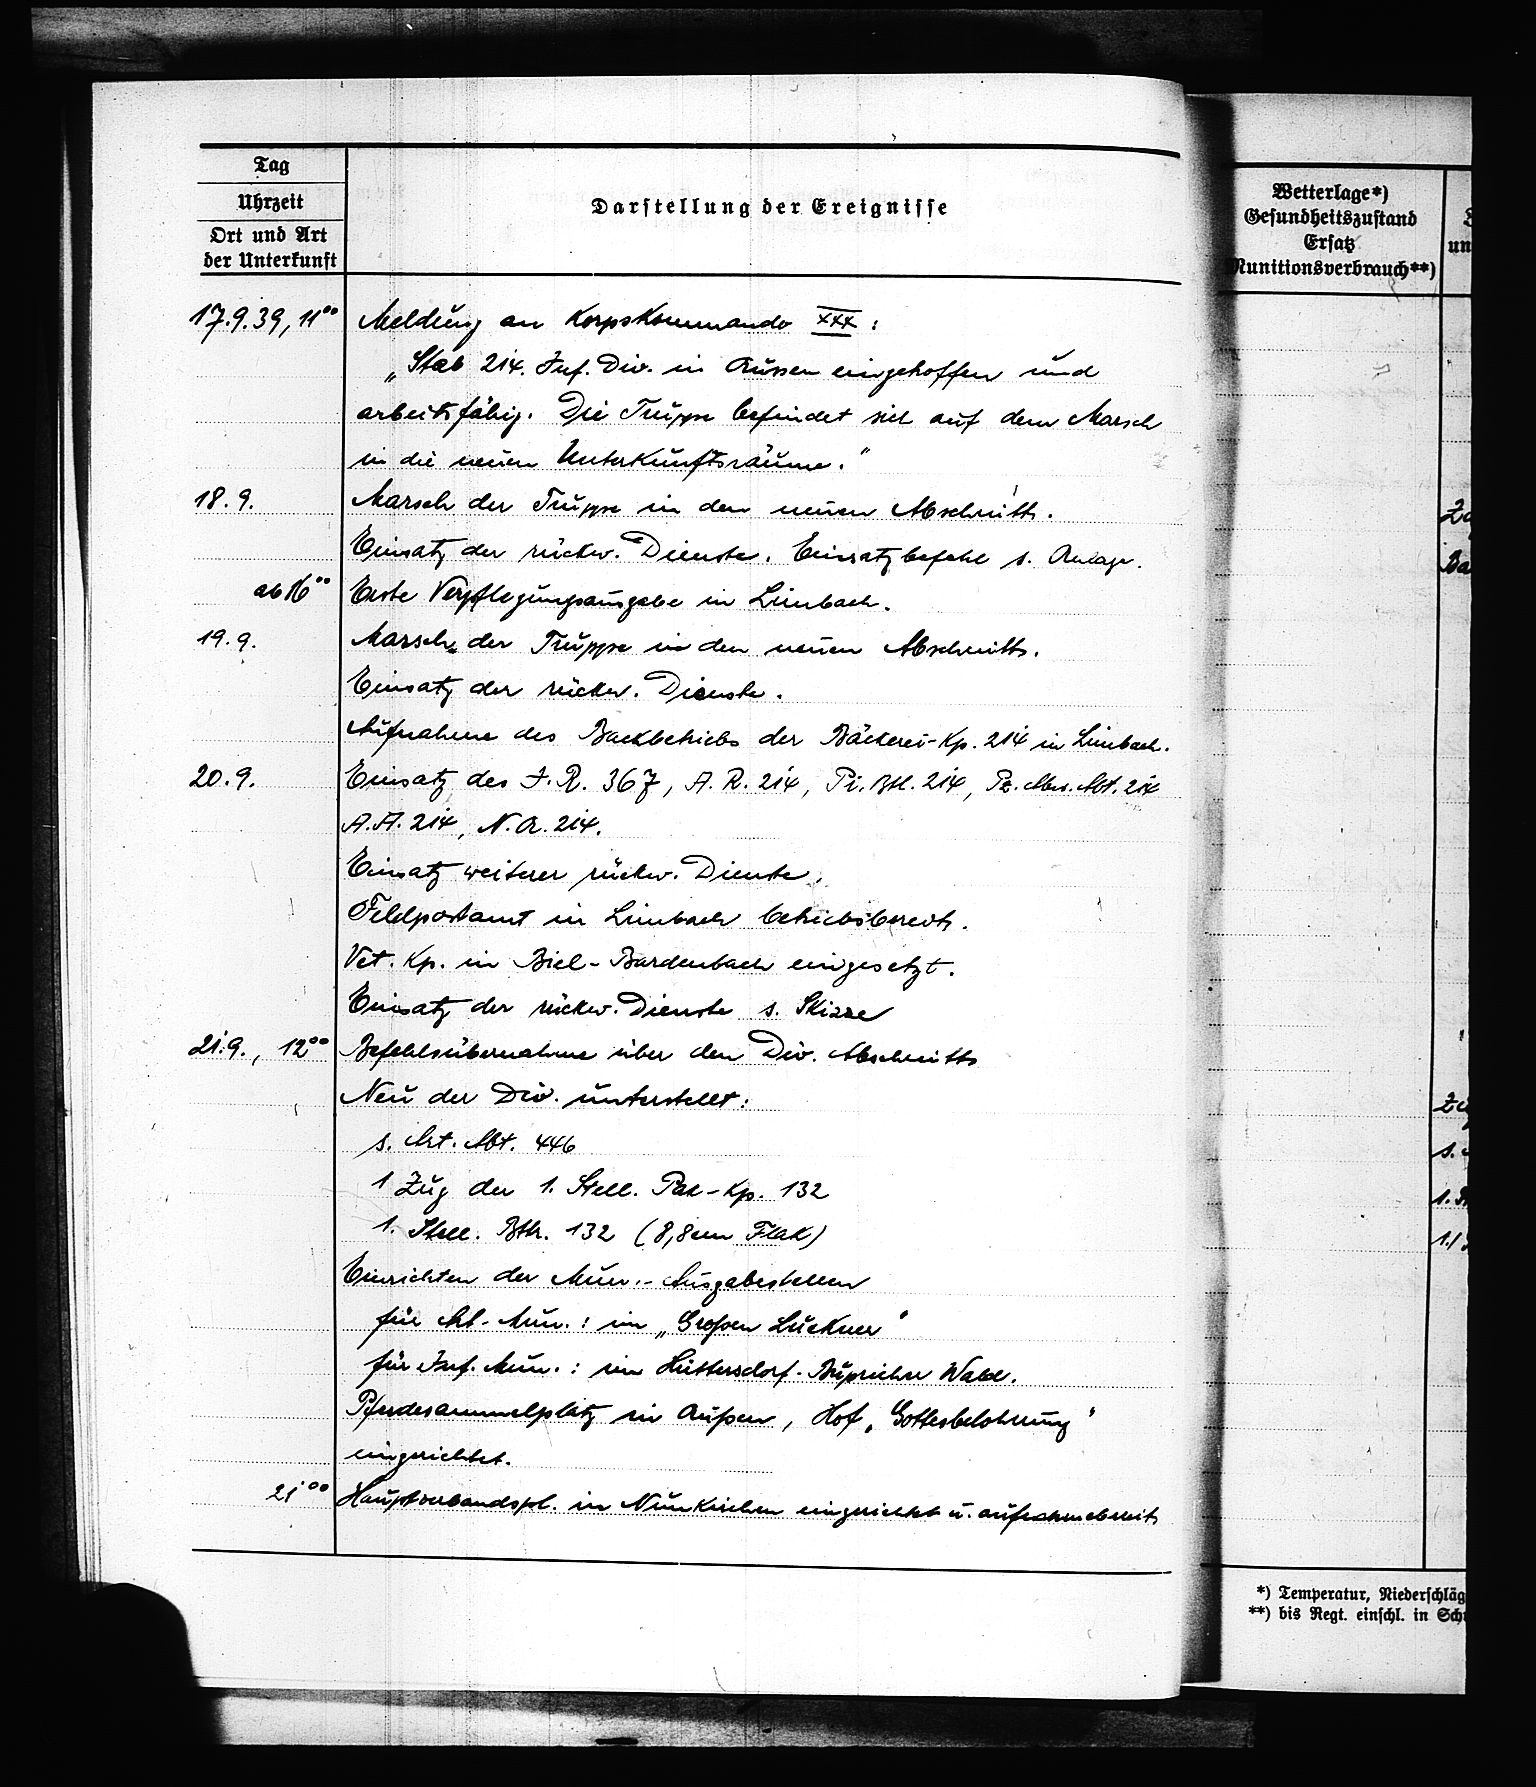 Tag
Uhrzeit
Ort und Art
der Unterkunft
Darstellung der Ereignisse
17.9.39, 11⁰⁰ Meldung an Korpskommando XXX :
„Stab 214. Inf. Div. in Aussen eingetroffen und
arbeitsfähig. Die Truppe befindet sich auf dem Marsch
in die neuen Unterkunftsräume.“
18.9. Marsch der Truppe in den neuen Abschnitt.
Einsatz der rückw. Dienste. Einsatzbefehl s. Anlage.
ab 16⁰⁰ Erste Verpflegungsausgabe in Limbach.
19.9. Marsch der Truppe in den neuen Abschnitt.
Einsatz der rückw. Dienste.
Aufnahme des Backbetriebs der Bäckerei-Kp. 214 in Limbach.
20.9. Einsatz des I.R. 367, A.R. 214, Pi. Btl. 214, Pz. Abw. Abt. 214
A.A. 214, N.A. 214.
Einsatz weiterer rückw. Dienste.
Feldpostamt in Limbach betriebsbereit.
Vet. Kp. in Biel-Bardenbach eingesetzt.
Einsatz der rückw. Dienste s. Skizze
21.9., 12⁰⁰ Befehlsübernahme über den Div. Abschnitt
Neu der Div. unterstellt:
s. Art. Abt. 446
1 Zug der 1. Stell. Pak-Kp. 132
1. Stell. Bttr. 132 (8,8cm Flak)
Einrichten der Mun.-Ausgabestellen
für Art.-Mun.: im „Großen Luckner“
für Inf. Mun.: im Hüttersdorf-Bupricher Wald.
Pferdesammelplatz in Außen, Hof „Gottesbelohnung“
eingerichtet.
21⁰⁰ Hauptverbandspl. in Nunkirchen eingerichtet u. aufnahmebereit
Wetterlage*)
Gesundheitszustand
Ersatz
Munitionsverbrauch**)
un
Ba
*) Temperatur, Niederschläg
**) bis Regt. einschl. in Sch